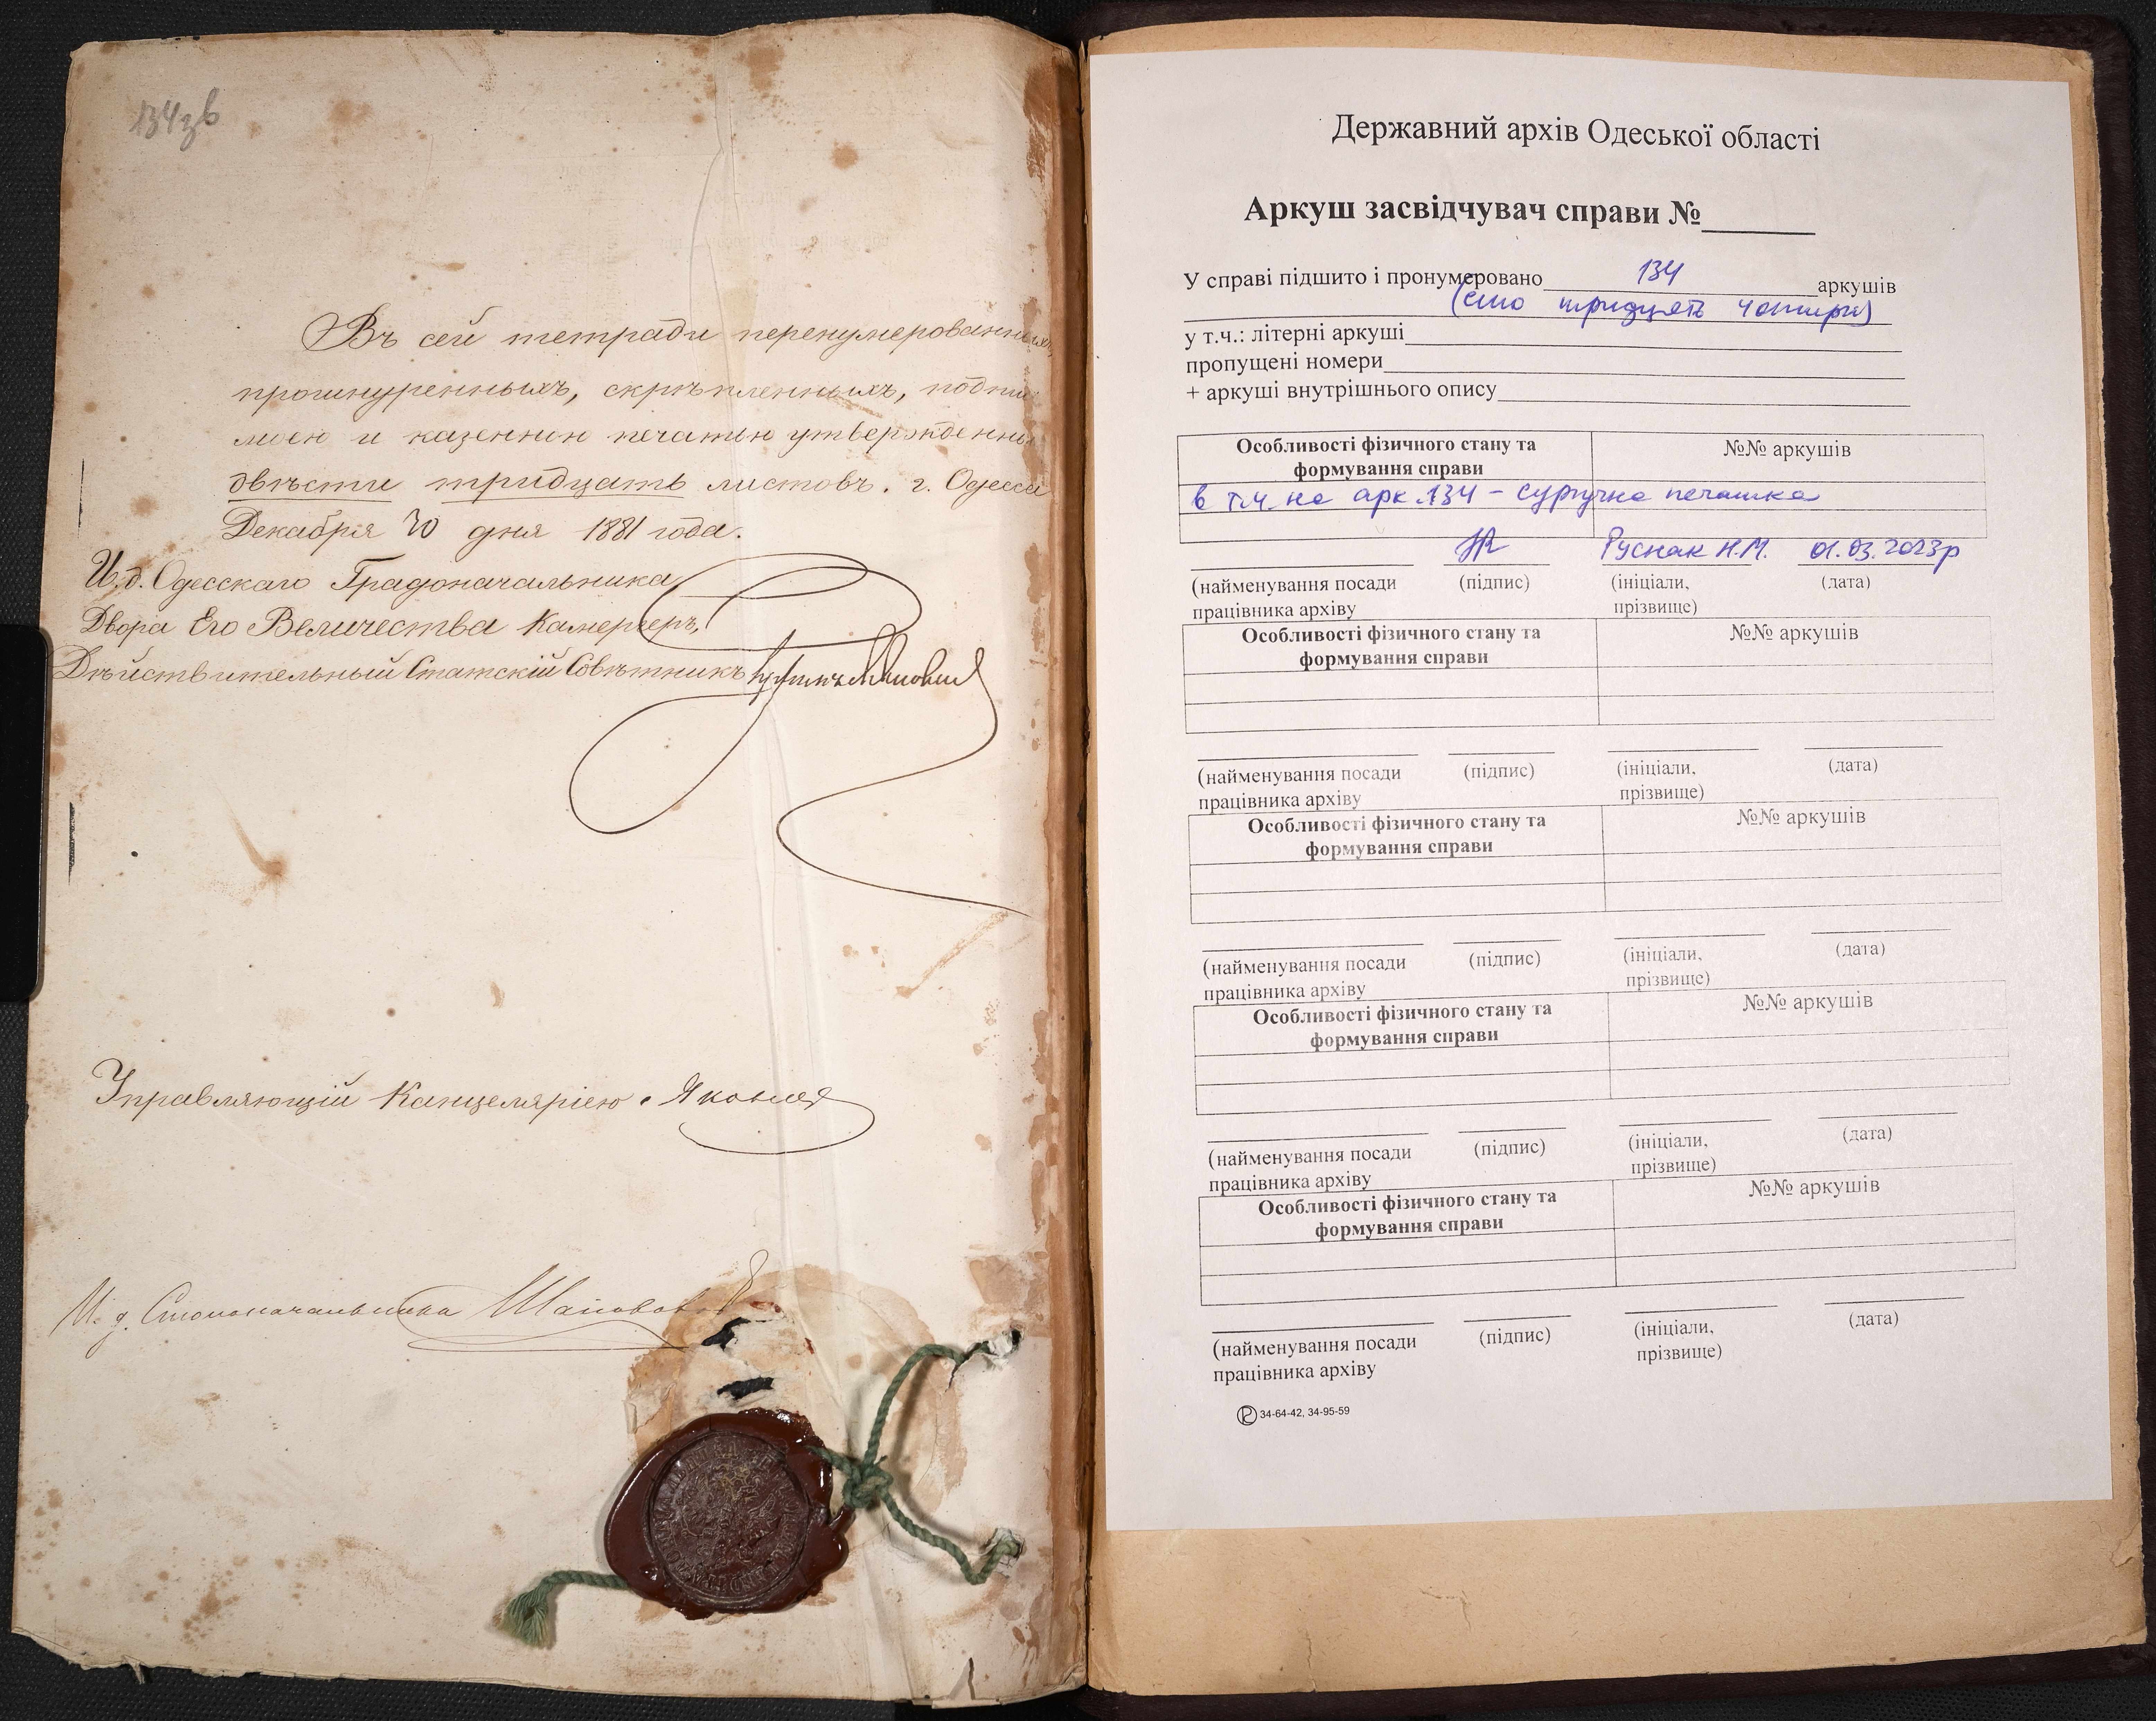 134зв
Въ сей тетради перенумерованныхъ,
прошнуренныхъ, скрѣпленныхъ, подпи
моею и казенною печатью утвержденны
двѣсти тридцать листовъ. г. Одесса
Декабря 30 дня 1881 года.
И. д. Одесскаго Градоначальника
Двора Его Величества Камергеръ,
Дѣйствительный Статскій Совѣтникъ
Управляющій Канцеляріею. Яковлев
И. д. Столоначальника
Державний архів Одеської області
Аркуш засвідчувач справи №
У справі підшито і пронумеровано 134 аркушів
(сто тридцять чотири)
у т.ч.: літерні аркуші
пропущені номери
+ аркуші внутрішнього опису
Особливості фізичного стану та №№ аркушів
формування справи
в т.ч. на арк. 134 - сургучна печатка
Руснак Н.М. 01.03.2023р
(найменування посади (підпис) (ініціали, (дата)
працівника архіву прізвище)
Особливості фізичного стану та №№ аркушів
формування справи
(найменування посади (підпис) (ініціали, (дата)
працівника архіву прізвище)
Особливості фізичного стану та №№ аркушів
формування справи
(найменування посади (підпис) (ініціали, (дата)
працівника архіву прізвище)
Особливості фізичного стану та №№ аркушів
формування справи
(найменування посади (підпис) (ініціали, (дата)
працівника архіву прізвище)
Особливості фізичного стану та №№ аркушів
формування справи
(найменування посади (підпис) (ініціали, (дата)
працівника архіву прізвище)
34-64-42, 34-95-59